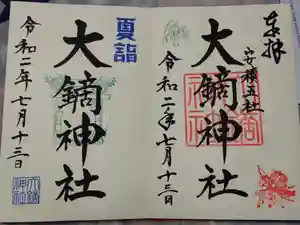 奉拝
安積五社
大鏑神社
令和二年七月十三日
夏詣
大鏑神社
令和二年七月十三日
大鏑神社